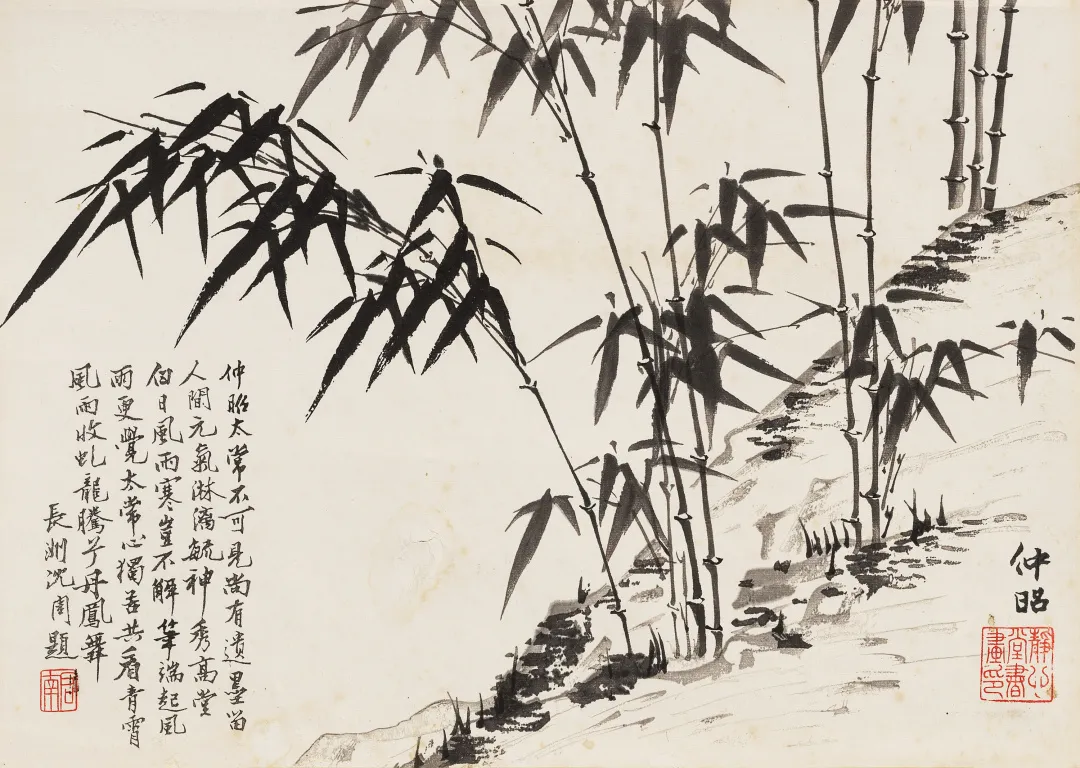 仲昭
仲昭太常不可見尚有遺墨留
人間元氣淋漓毓神秀高堂
日風雨寒豈不解筆端起風
雨更覺太常心獨苦共看青霄
風雨收虬龍騰兮丹鳳舞
長洲沈周題